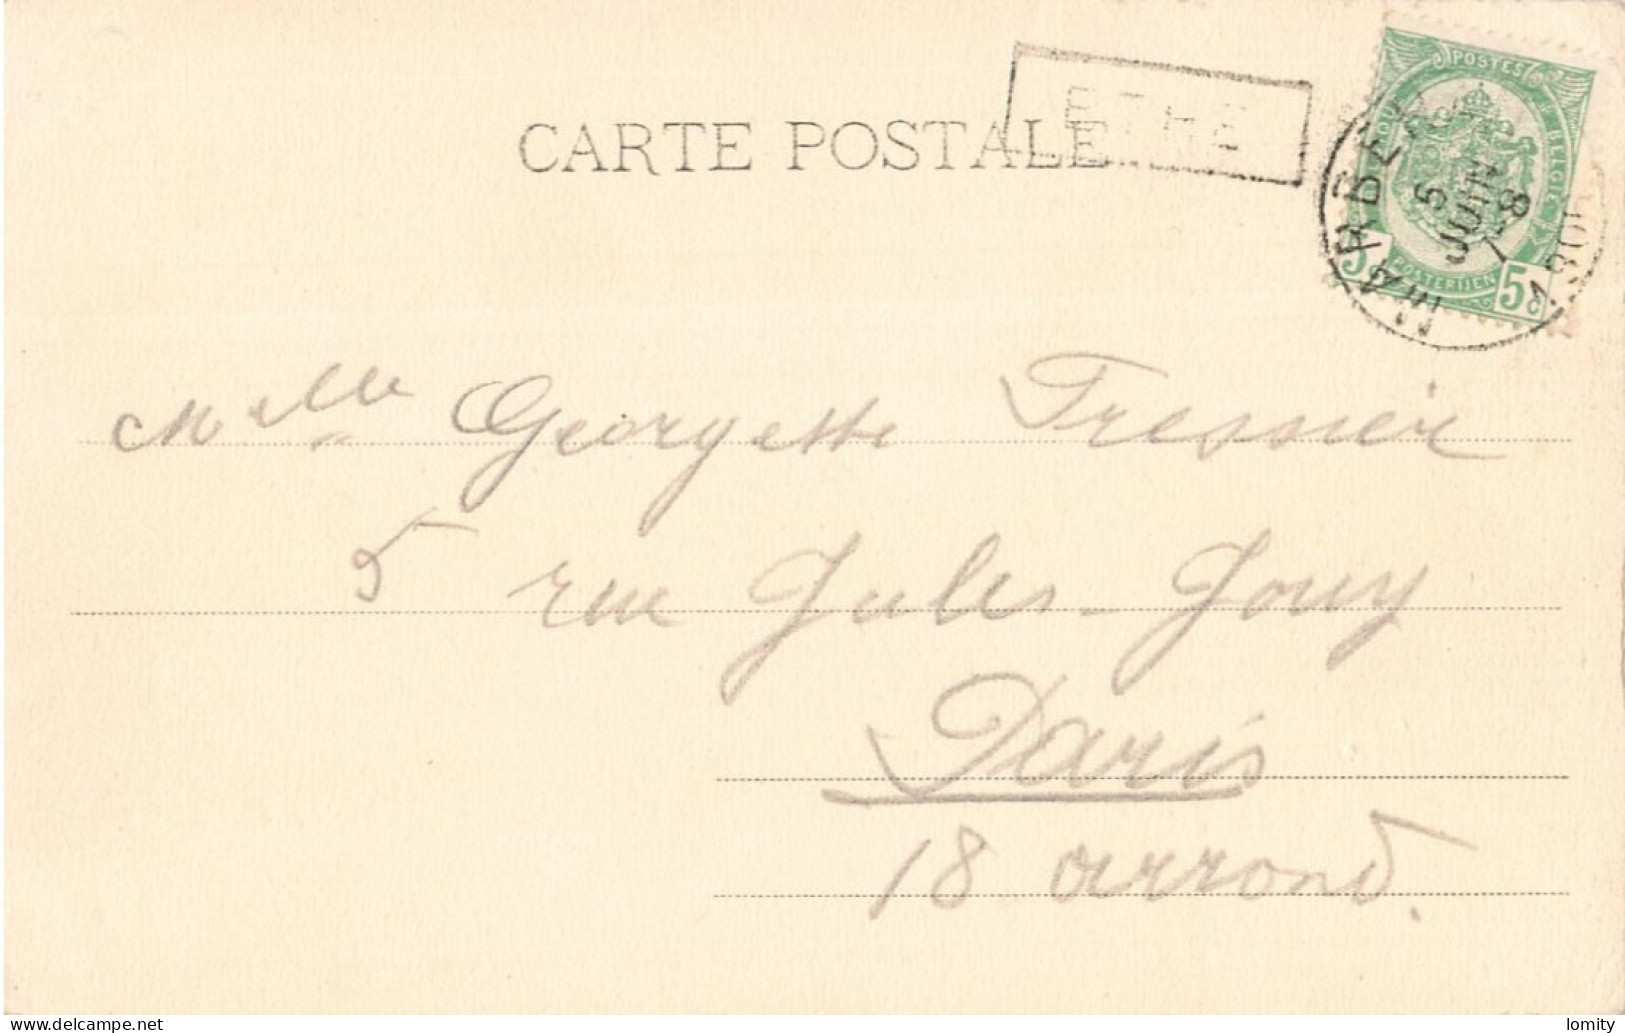 CARTE POSTALE
ETHE
POSTES
BELGIQUE
POSTERIJEN
5c 5c
MARBEHAN
5
JUIN
7-8
1901
Melle Georgette Tresnier
5 rue Jules-Jouy
Paris
18 arrond.
www.delcampe.net
lomity